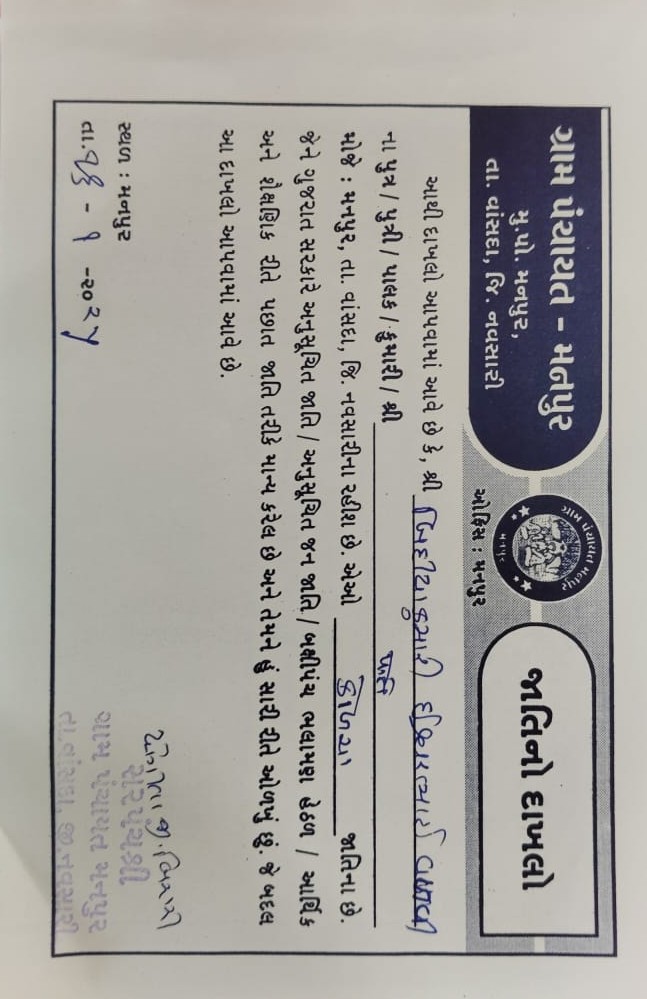 ગ્રામ પંચાયત - મનપુર
મુ.પો. મનપુર,
તા. વાંસદા, જિ. નવસારી
ગ્રામ પંચાયત મનપુર
મનપુર
ઓફિસ : મનપુર
જાતિનો દાખલો
આથી દાખલો આપવામાં આવે છે કે, શ્રી
ના પુત્ર / પુત્રી / પાલક / કુમારી / શ્રી
મોજે : મનપુર, તા. વાંસદા, જિ. નવસારીના રહીશ છે. એઓ કુંકણા જાતિના છે.
જેને ગુજરાત સરકારે અનુસૂચિત જાતિ / અનુસૂચિત જન જાતિ / બક્ષીપંચ ભલામણ હેઠળ / આર્થિક
અને શૈક્ષણિક રીતે પછાત જાતિ તરીકે માન્ય કરેલ છે અને તેમને હું સારી રીતે ઓળખું છું. જે બદલ
આ દાખલો આપવામાં આવે છે.
સ્થળ : મનપુર
તા. - ૧ -૨૦૨૫
સરપંચશ્રી
ગ્રામ પંચાયત મનપુર
તા.વાંસદા, જી.નવસારી